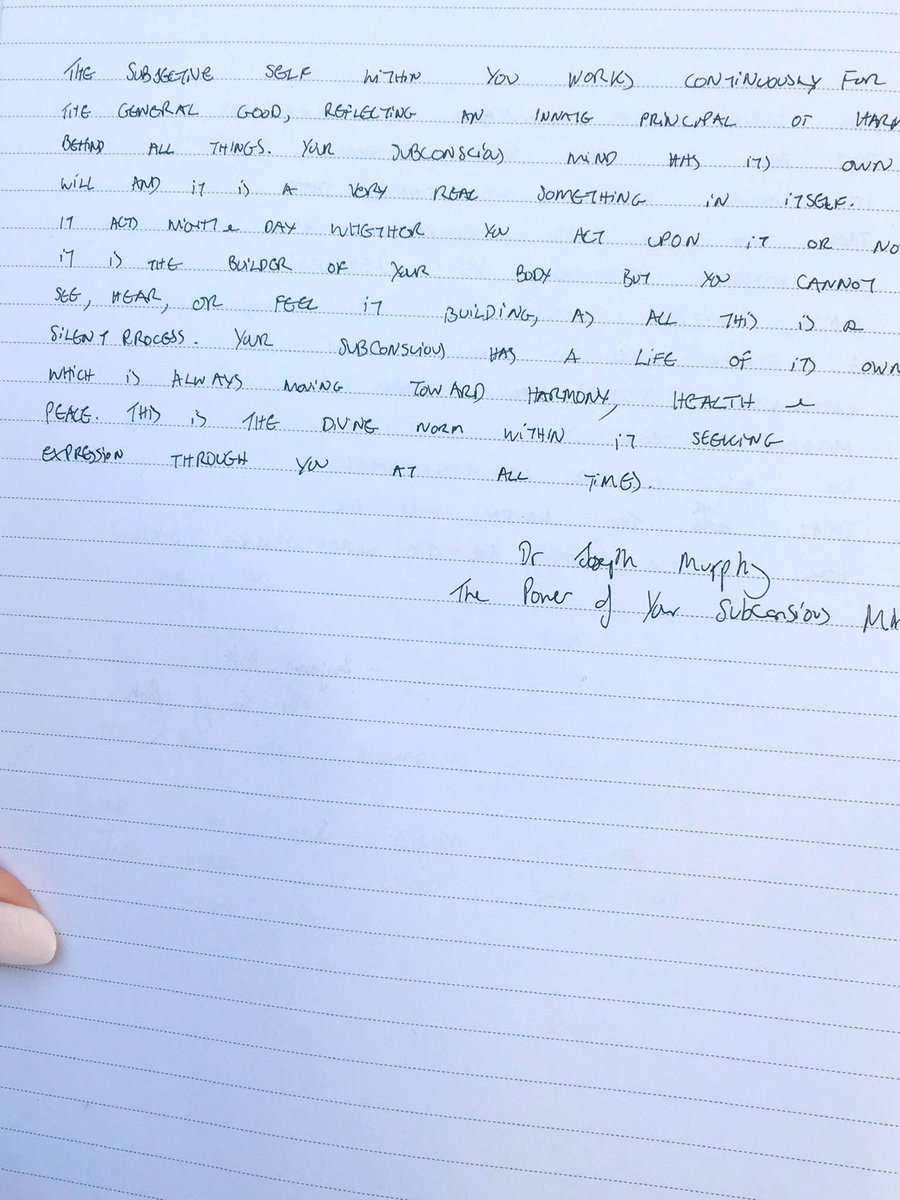 THE SUBJECTIVE SELF WITHIN YOU WORKS CONTINUOUSLY FOR
THE GENERAL GOOD, REFLECTING AN INNATE PRINCIPAL OF HARM
BEHIND ALL THINGS. YOUR SUBCONSCIOUS MIND HAS ITS OWN
WILL AND IT IS A VERY REAL SOMETHING IN ITSELF.
IT ACTS NIGHT & DAY WHETHER YOU ACT UPON IT OR NO
IT IS THE BUILDER OF YOUR BODY BUT YOU CANNOT
SEE, HEAR, OR FEEL IT BUILDING, AS ALL THIS IS A
SILENT PROCESS. YOUR SUBCONSCIOUS HAS A LIFE OF ITS OWN
WHICH IS ALWAYS MOVING TOWARD HARMONY, HEALTH &
PEACE. THIS IS THE DIVINE NORM WITHIN IT SEEKING
EXPRESSION THROUGH YOU AT ALL TIMES.
Dr Joseph Murphy
The Power of Your Subconsious